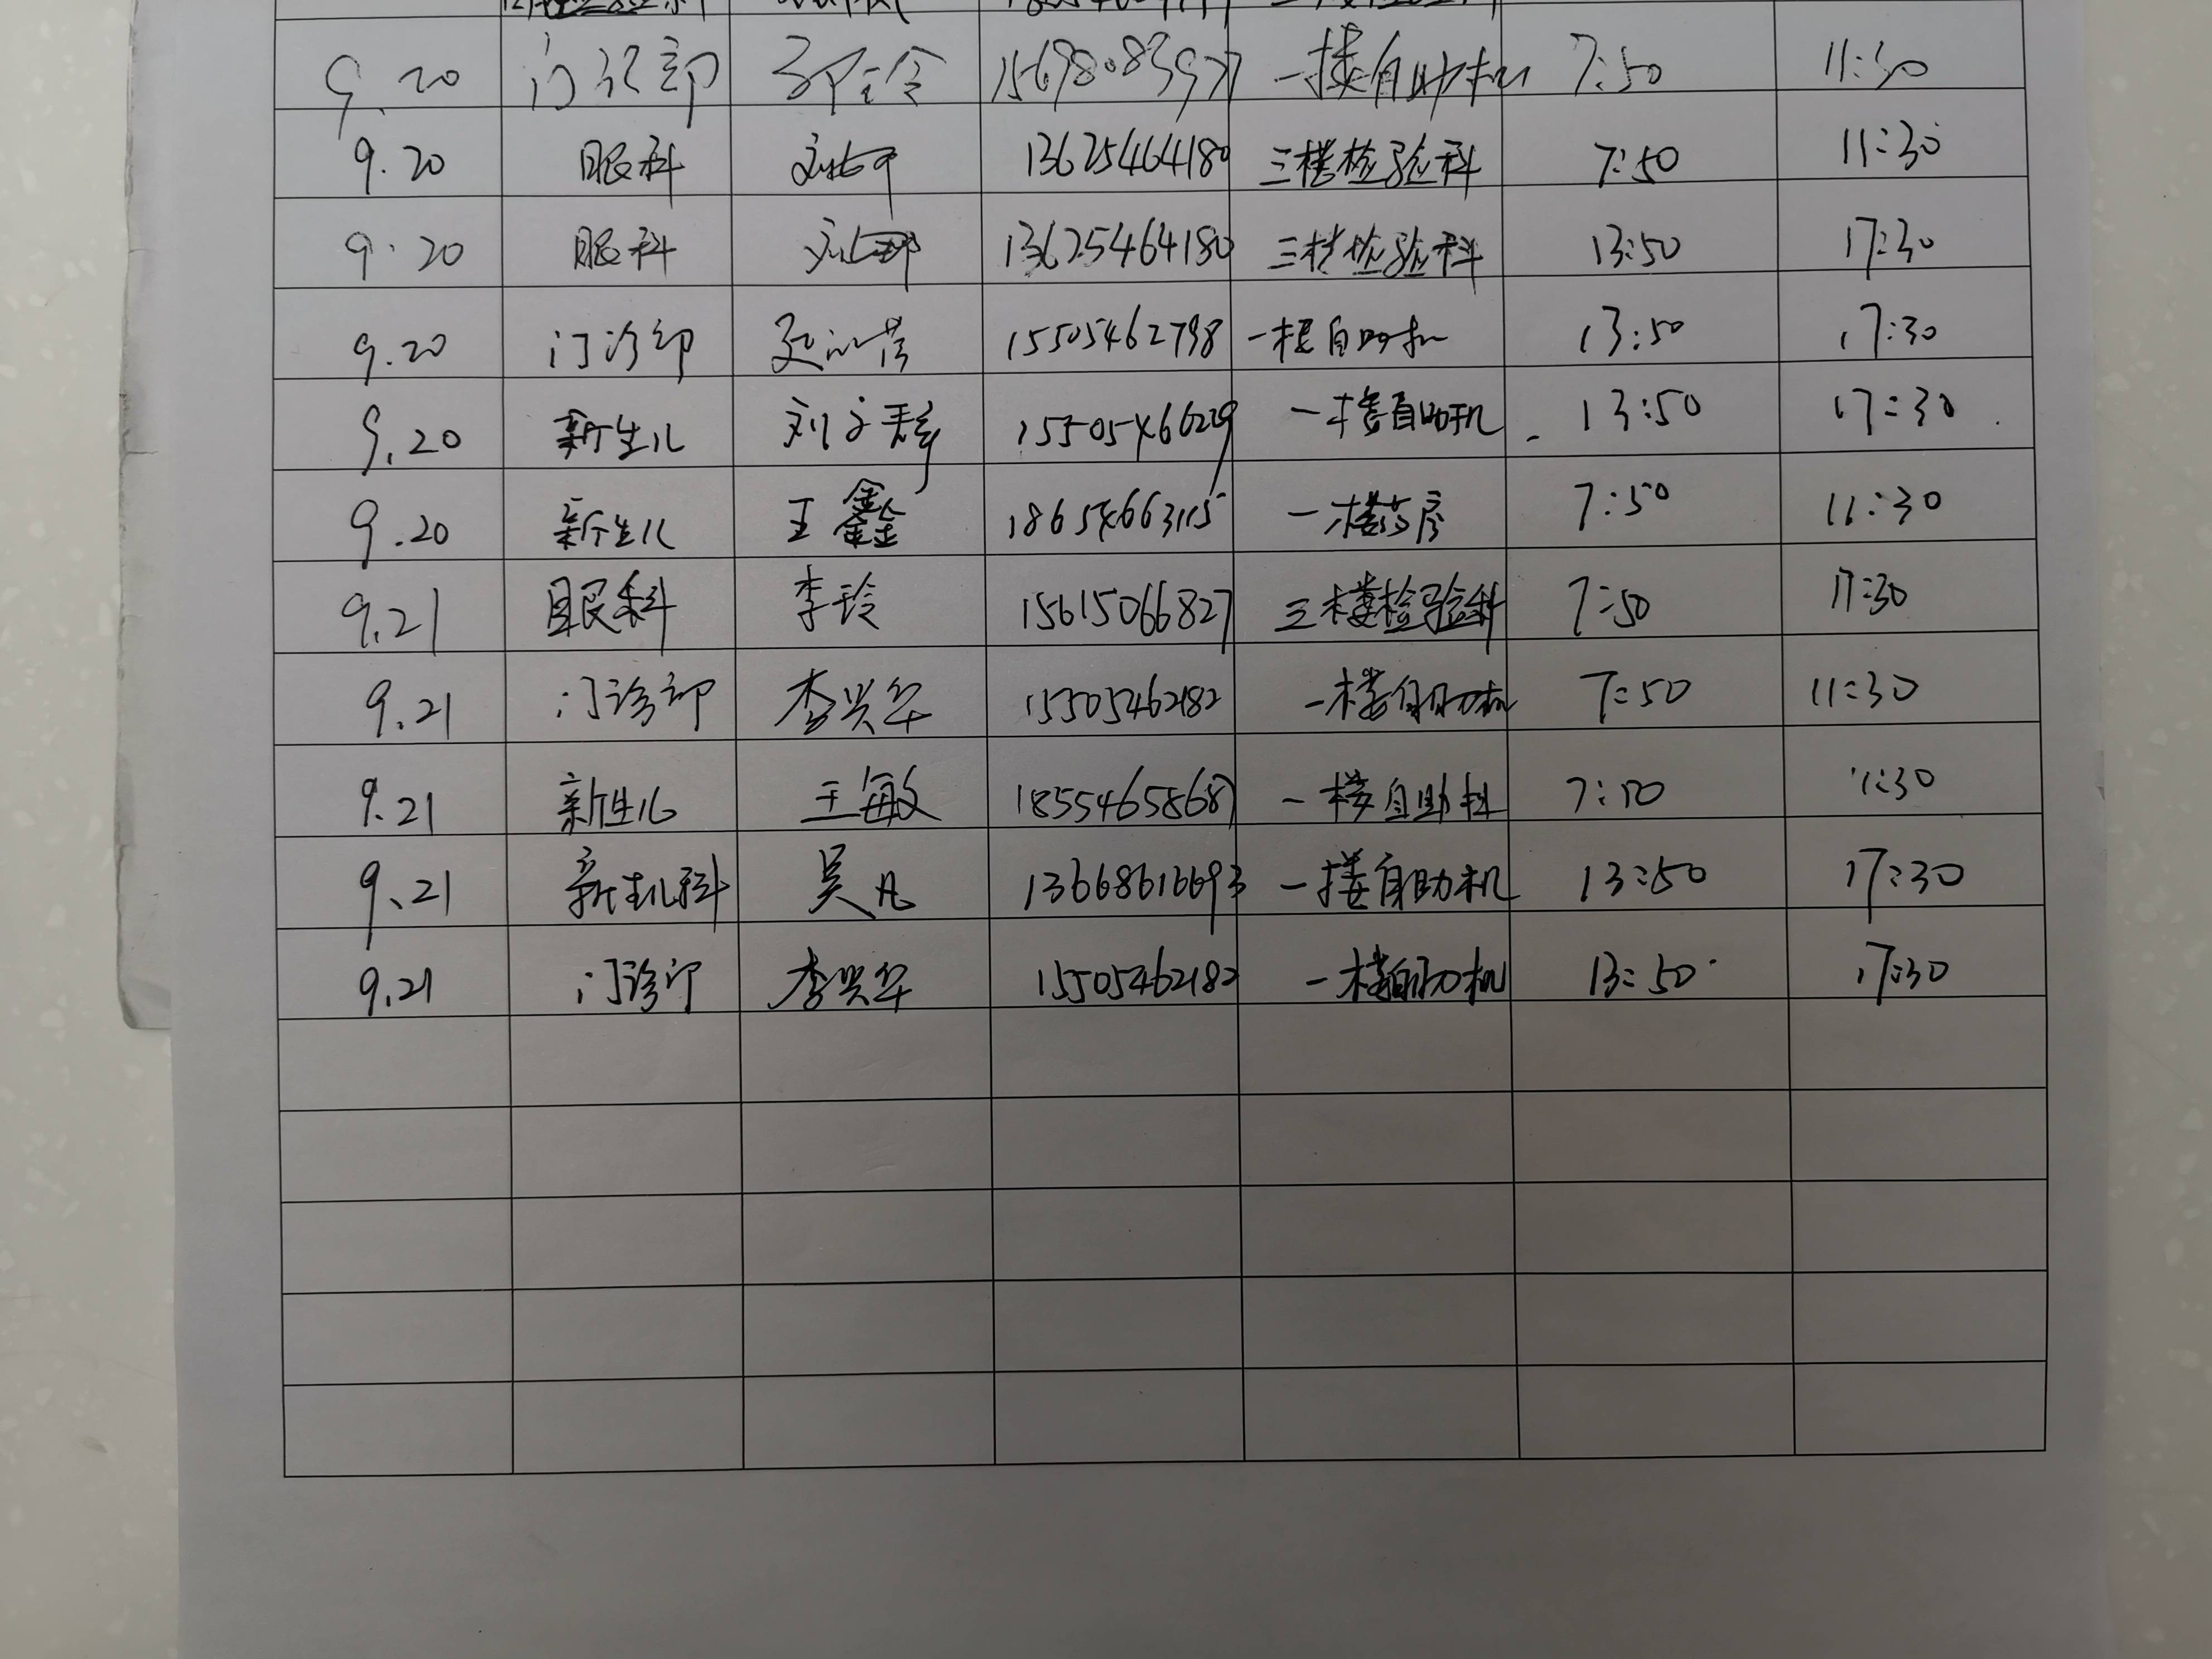 9.20 门诊部 15698083977 一楼自助机 7:50 11:30
9.20 眼科 13625464180 三楼检验科 7:50 11:30
9.20 眼科 13625464180 三楼检验科 13:50 17:30
9.20 门诊部 15505462798 一楼自助机 13:50 17:30
9.20 新生儿 刘文 15505466229 一楼自助机 13:50 17:30
9.20 新生儿 王鑫 18654663115 一楼药房 7:50 11:30
9.21 眼科 李玲 15615066827 三楼检验科 7:50 17:30
9.21 门诊部 李兴华 15505462182 一楼自助机 7:50 11:30
9.21 新生儿 王敏 18554658687 一楼自助机 7:50 11:30
9.21 新生儿科 吴凡 13668616693 一楼自助机 13:50 17:30
9.21 门诊部 李兴华 15505462182 一楼自助机 13:50 17:30